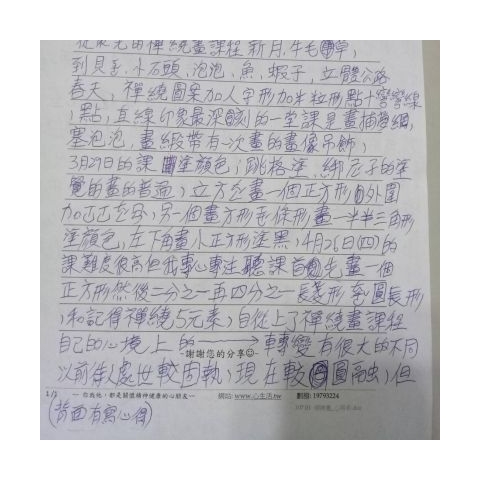 從 禪繞畫課程 新月、牛毛草,
到貝舌、小石頭、泡泡、魚、蝦子、立體公路
春天,禪繞圖案加人字形加米粒形點十彎彎線
,點,直線印象最深刻的一堂課是畫捕夢網,
塞泡泡,畫緞帶有一次畫的畫像吊飾,
3月29日的課 塗顏色,跳格塗、 的塗
覺的畫的普 ,立方 畫一個正方形 外圍
加 ,另一個畫方形 條形畫一半半三角形
塗顏色,左下角畫小正方形塗黑,4月26日(四)的
課難度很高但我專心專注聽課首先畫一個
正方形然後二分之一再四分之一長菱形 圓長形
,和記得禪繞5元素,自從上了禪繞畫課程
自己的心境上的 → 轉變有很大的不同
~謝謝您的分享☺~
以前待人處世較固執,現在較圓融,但
1/3
~~ 你我他,都是關懷精神健康的心朋友~~ 網站: www.心生活.tw 劃撥: 19793224
(背面有寫心得)